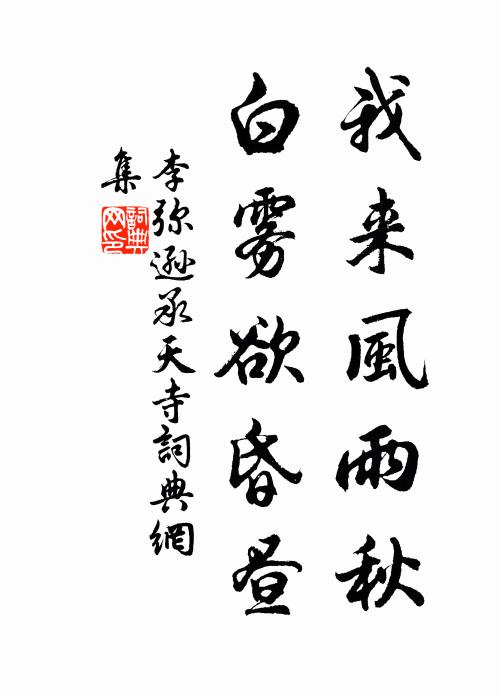 我来風雨秋
白雾欲昏昼
李弥遜承天寺詞典網
集
詞典
网印